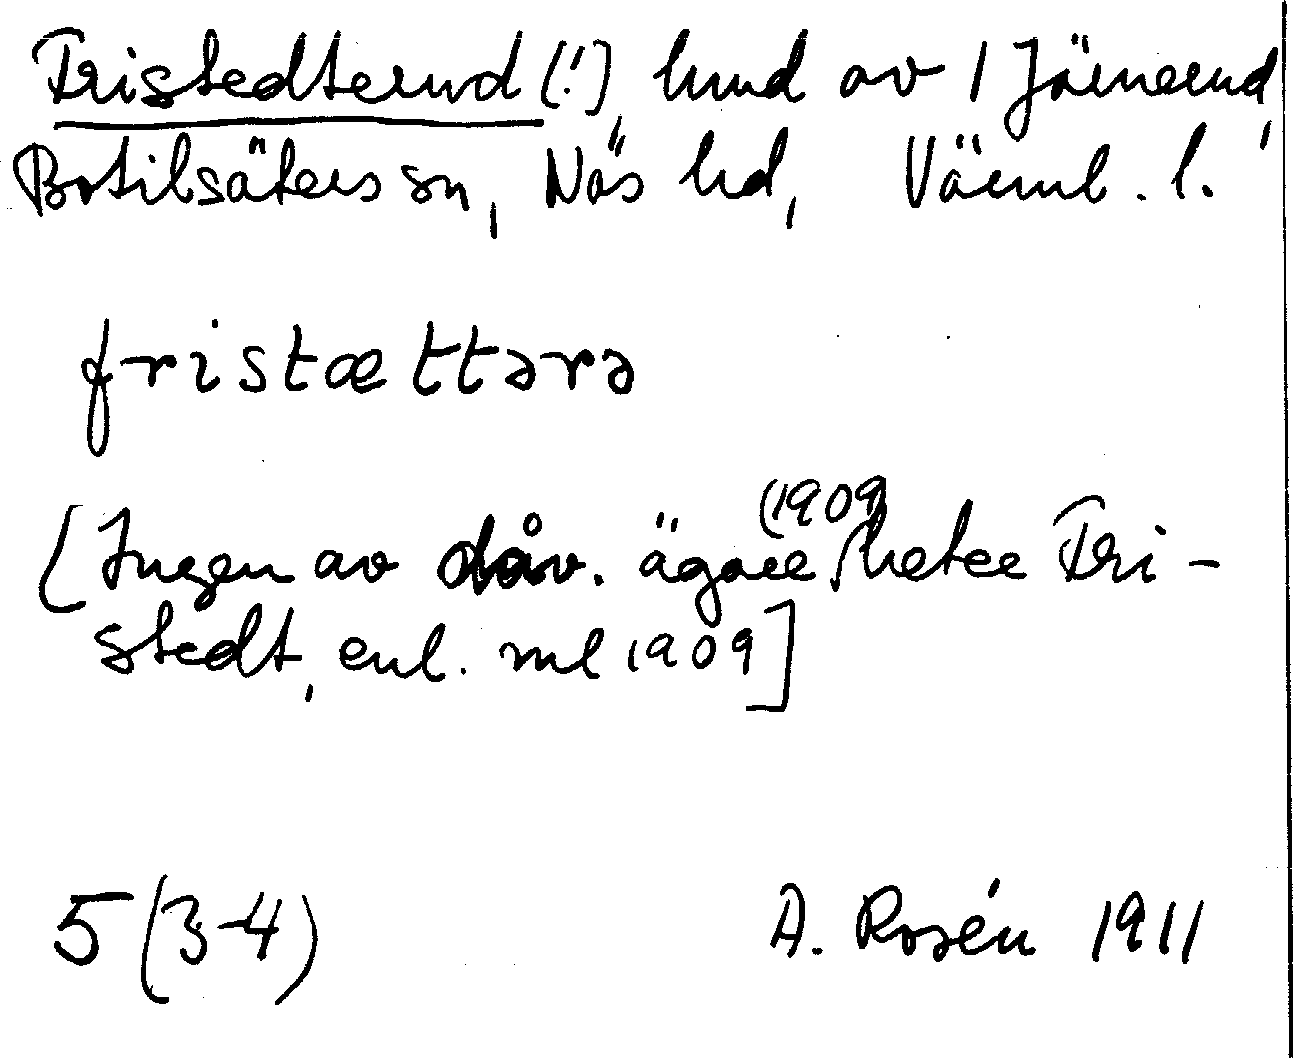 Fristedterud (!), hmd av 1 Järnerud,
Botilsäters sn, Näs hd, Värml. l.
fristættərə
[Ingen av dåv. ägare (1909) heter Fri-
stedt, enl. ml 1909]
5 (3-4) A. Rosén 1911